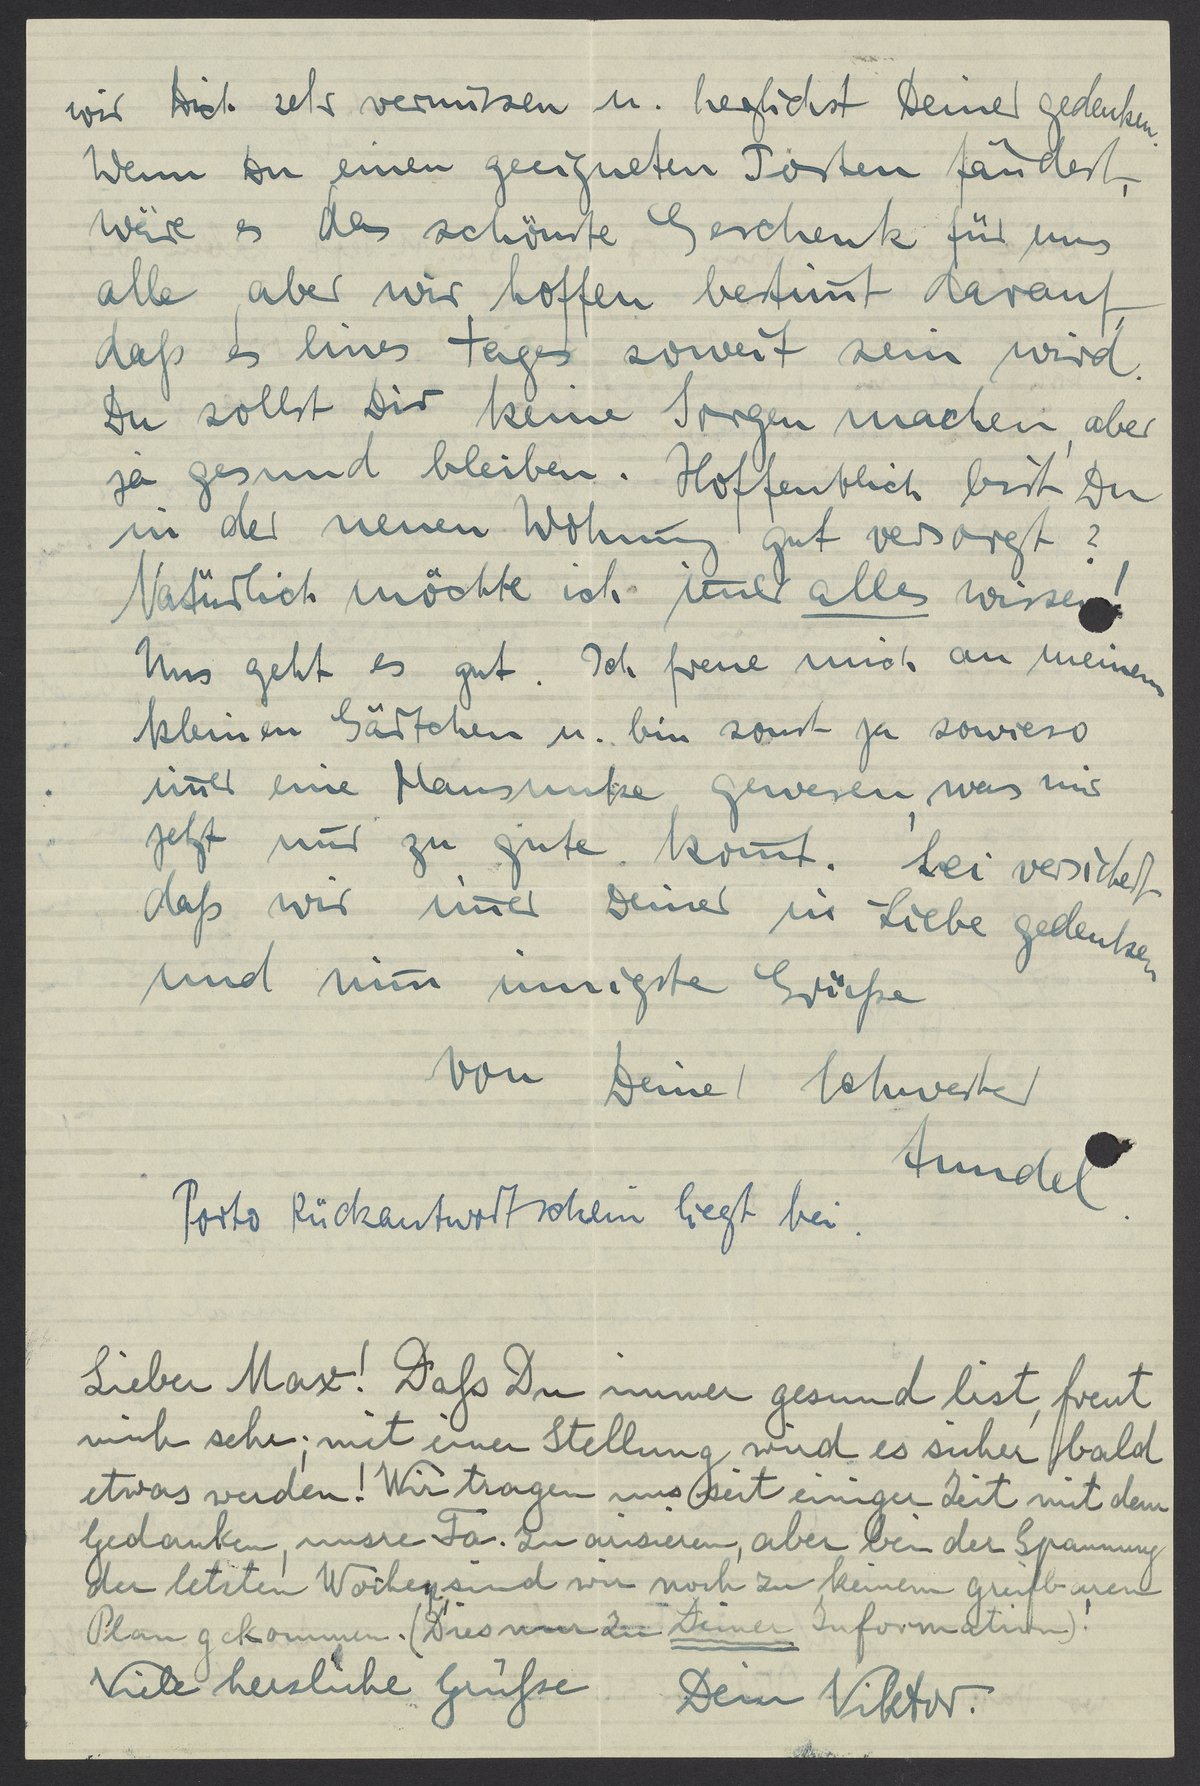 wir Dich sehr vermissen u. herzlichst Deiner gedenken.
Wenn Du einen geeigneten Posten fändest,
wäre es das schönste Geschenk für uns
alle aber wir hoffen bestim̄t darauf,
daß es eines Tages soweit sein wird.
Du sollst Dir keine Sorgen machen, aber
ja gesund bleiben. Hoffentlich bist Du
in der neuen Wohnung gut versorgt?
Natürlich möchte ich im̄er alles wissen!
Uns geht es gut. Ich freue mich an meinem
kleinen Gärtchen u. bin sonst ja sowieso
im̄er eine Hausunke gewesen, was mir
jetzt nur zu gute kom̄t. Sei versichert
daß wir im̄er Deiner in Liebe gedenken
und nim̄ innigste Grüße
von Deiner Schwester
Porto Rückantwortschein liegt bei.
Lieber Max! Daß Du immer gesund bist, freut
mich sehr; mit einer Stellung wird es sicher bald
etwas werden! Wir tragen uns seit einiger Zeit mit dem
Gedanken, unsre Fa. zu arisieren, aber bei der Spannung
der letzten Wochen sind wir noch zu keinem greifbaren
Plan gekommen. (Dies nur zu Deiner Information)!
Viele herzliche Grüße Dein Viktor.